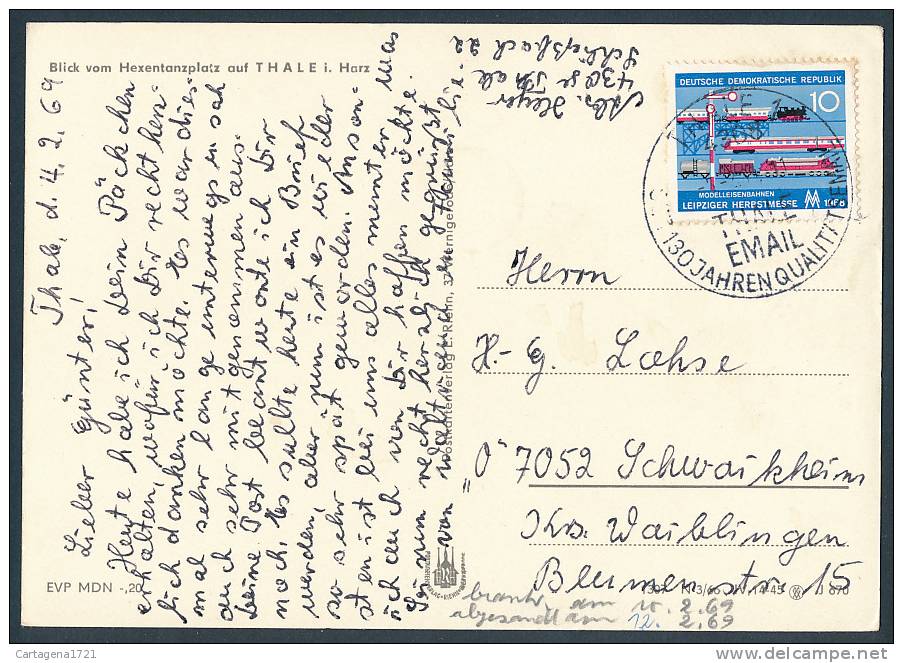 Blick vom Hexentanzplatz auf THALE i. Harz
Thale, d. 4. 2. 69
Lieber Günter!
Heute habe ich Dein Päckchen
erhalten, wofür ich Dir recht herz-
lich danken möchte. Es war dies-
mal sehr lange unterwegs u. sah
auch sehr mitgenommen aus.
Deine Post beantworte ich Dir
noch. Es sollte heute ein Brief
werden, aber nun ist es wieder
so sehr spät geworden. Anson-
sten ist bei uns alles munter, was
ich auch von Dir hoffen möchte.
Sei nun recht herzlich gegrüßt
von
EVP MDN -,20
Postkartenverlag E. Riehn, 37 Wernigerode
Abs. Heyer
430 Thale
Schließfach 22
DEUTSCHE DEMOKRATISCHE REPUBLIK
10
MODELLEISENBAHNEN
LEIPZIGER HERBSTMESSE MM 1968
THALE
EMAIL
130 JAHREN QUALITÄT
Herrn
H.-G. Lohse
"O" 7052 Schwaikheim
Krs. Waiblingen
Blumenstr. 15
beantw. am 10. 2. 69
abgesandt am 12. 2. 69
Cartagena1721
www.delcampe.net